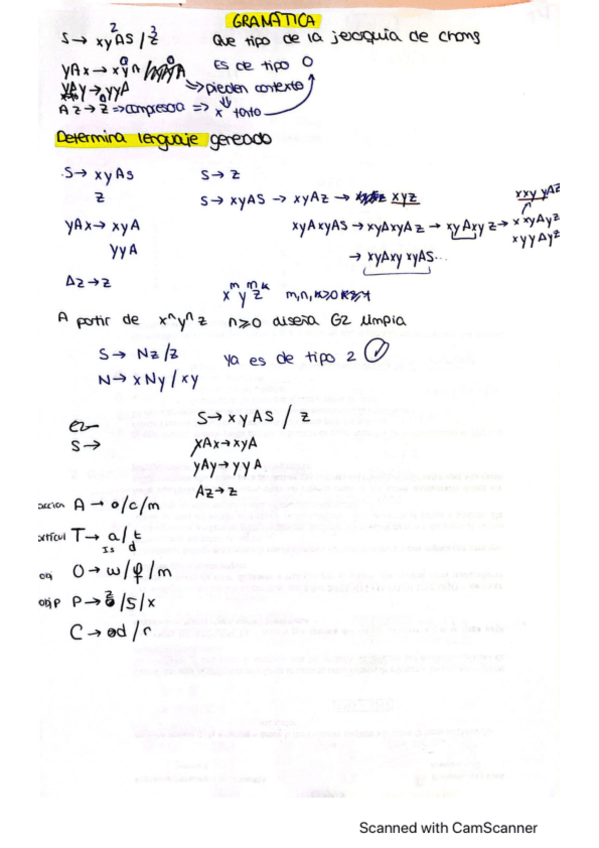 GRAMÁTICA
S → xyAS / z Que tipo de la jerarquia de choms
2 3
yAx → xyA Es de tipo 0
yAy → yyA => pierden contexto
Az → z => compresora => x tanto
Determina lenguaje gereado
S → xyAs S → z
z S → xyAS → xyAz → xyz
yAx → xyA xyAxyAS → xyAxyAz → xyAxyz → xxyAyz
yyA xyyAyz
→ xyAxy xyAS...
Az → z
x^m y^m z^k m,n,k≥0
A partir de x^n y^n z n≥0 diseña G2 limpia
S → Nz/z ya es de tipo 2
N → xNy/xy
S → xyAS / z
S →
yAx → xyA
yAy → yyA
Az → z
A → o/c/m
T → a/t
O → w/f/m
P → z/s/x
C → ad/r
Scanned with CamScanner